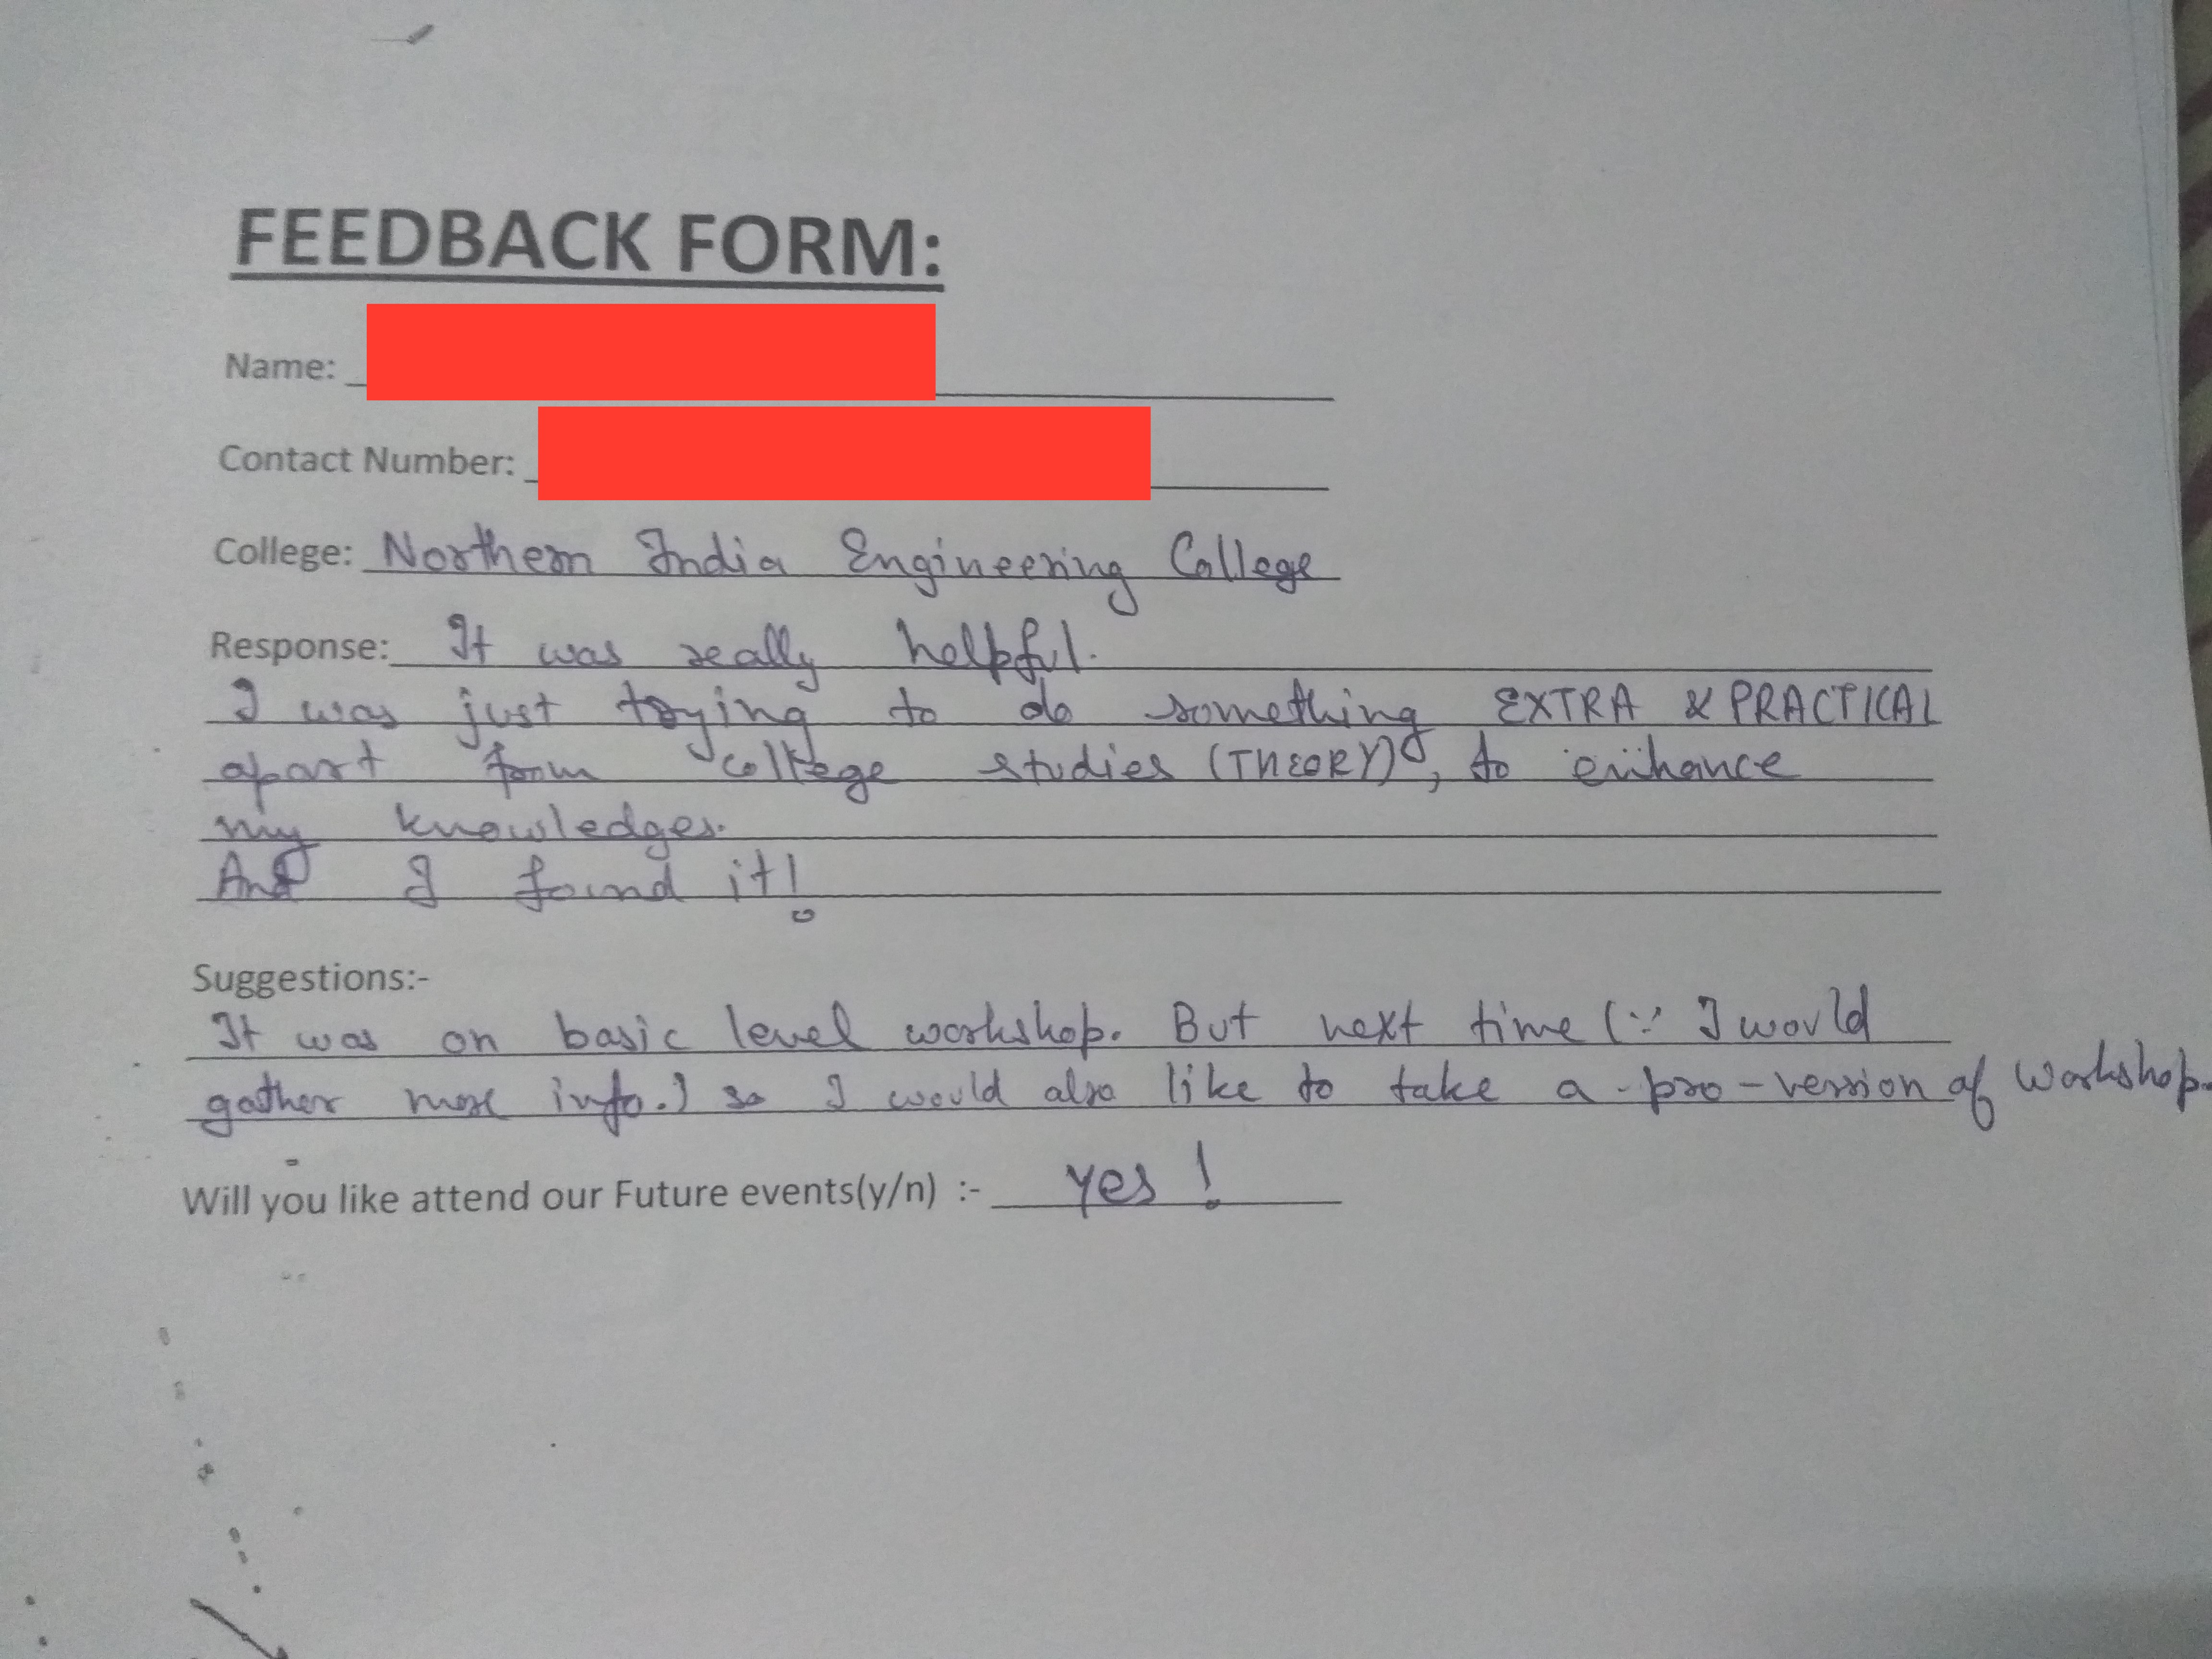 FEEDBACK FORM:
Name:
Contact Number:
College: Northern India Engineering College
Response: It was really helpful.
I was just trying to do something EXTRA & PRACTICAL
apart from college studies (THEORY), to enhance
my knowledges.
And I found it!
Suggestions:-
It was on basic level workshop. But next time (∵ I would
gather more info.) so I would also like to take a pro-version of workshop.
Will you like attend our Future events(y/n) :- yes !